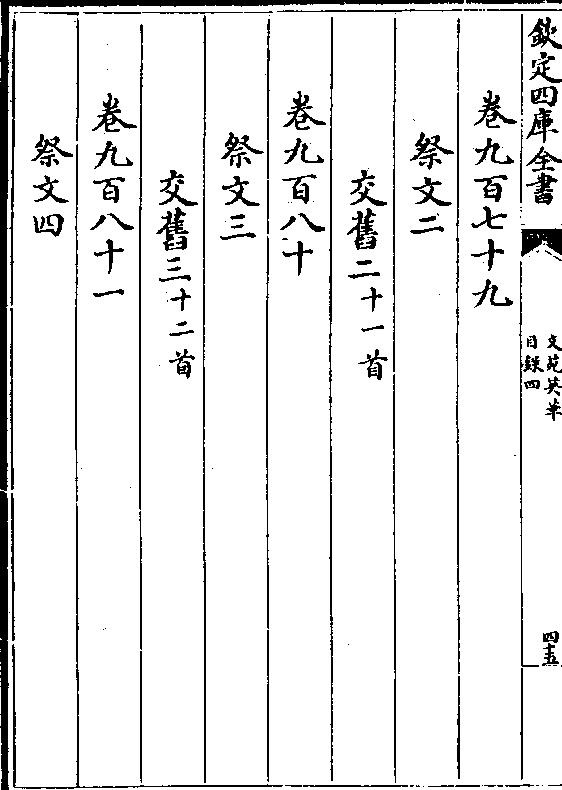 欽定四庫全書
文苑英華
目錄四
四十五
卷九百七十九
祭文二
交舊二十一首
卷九百八十
祭文三
交舊三十二首
卷九百八十一
祭文四